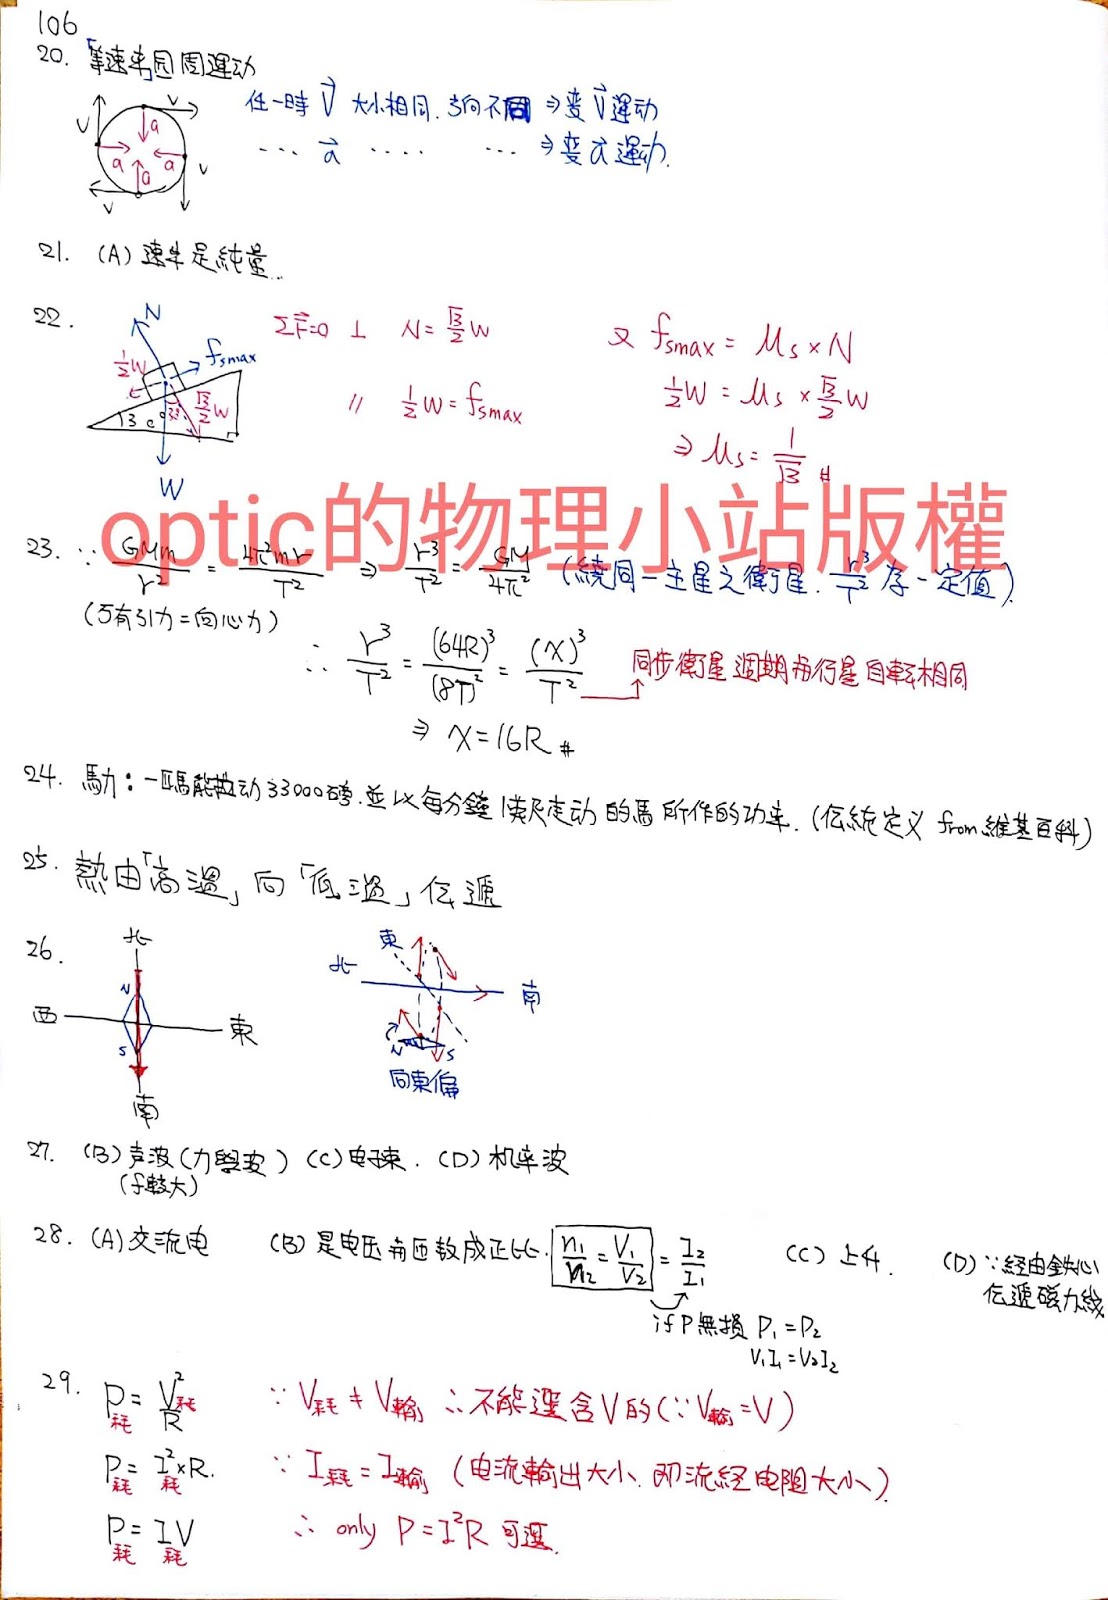 106
20. 「等速率」圓周運动
任一時 V⃗ 大小相同. 方向不同 ⇒ 变 V⃗ 運动
… a⃗ …. … ⇒ 変 a⃗ 運动.
V
V
a
a
a
a
V
V
21. (A) 速率是純量…
22.
N
fsmax
½W
√3/2 W
30°
W
ΣF⃗=0 ⊥ N = √3/2 W
// ½W = fsmax
又 fsmax = μs × N
½W = μs × √3/2 W
⇒ μs = 1/√3 #
optic的物理小站版權
23. ∵ GMm/r² = 4π²mr/T² ⇒ r³/T² = GM/4π² (繞同一主星之衛星. r³/T² 為一定值).
(万有引力=向心力)
∴ r³/T² = (64R)³/(8T)² = (x)³/T² 同步衛星週期為行星自転相同
⇒ x = 16R #
24. 馬力: 一匹馬能拉动33000磅.並以每分鐘1英尺走动的馬所作的功率. (伝統定义 from 維基百科)
25. 熱由「高溫」向「低溫」伝遞
26.
北
N
西 東
S
南
東
北 南
N S
向東偏
27. (B) 声波(力學波) (C) 电子束. (D) 机率波
(f較大)
28. (A) 交流电 (B) 是电压為匝数成正比. n₁/n₂ = V₁/V₂ = I₂/I₁ (C) 上升. (D) ∵経由鉄心
伝遞磁力线
if P無損 P₁ = P₂
V₁I₁ = V₂I₂
29. P耗 = V耗²/R ∵ V耗 ≠ V輸 ∴ 不能選含V的(∵V輸=V)
P耗 = I耗² × R. ∵ I耗 = I輸 (电流輸出大小、即流経电阻大小)
P耗 = I耗V ∴ only P = I²R 可選.